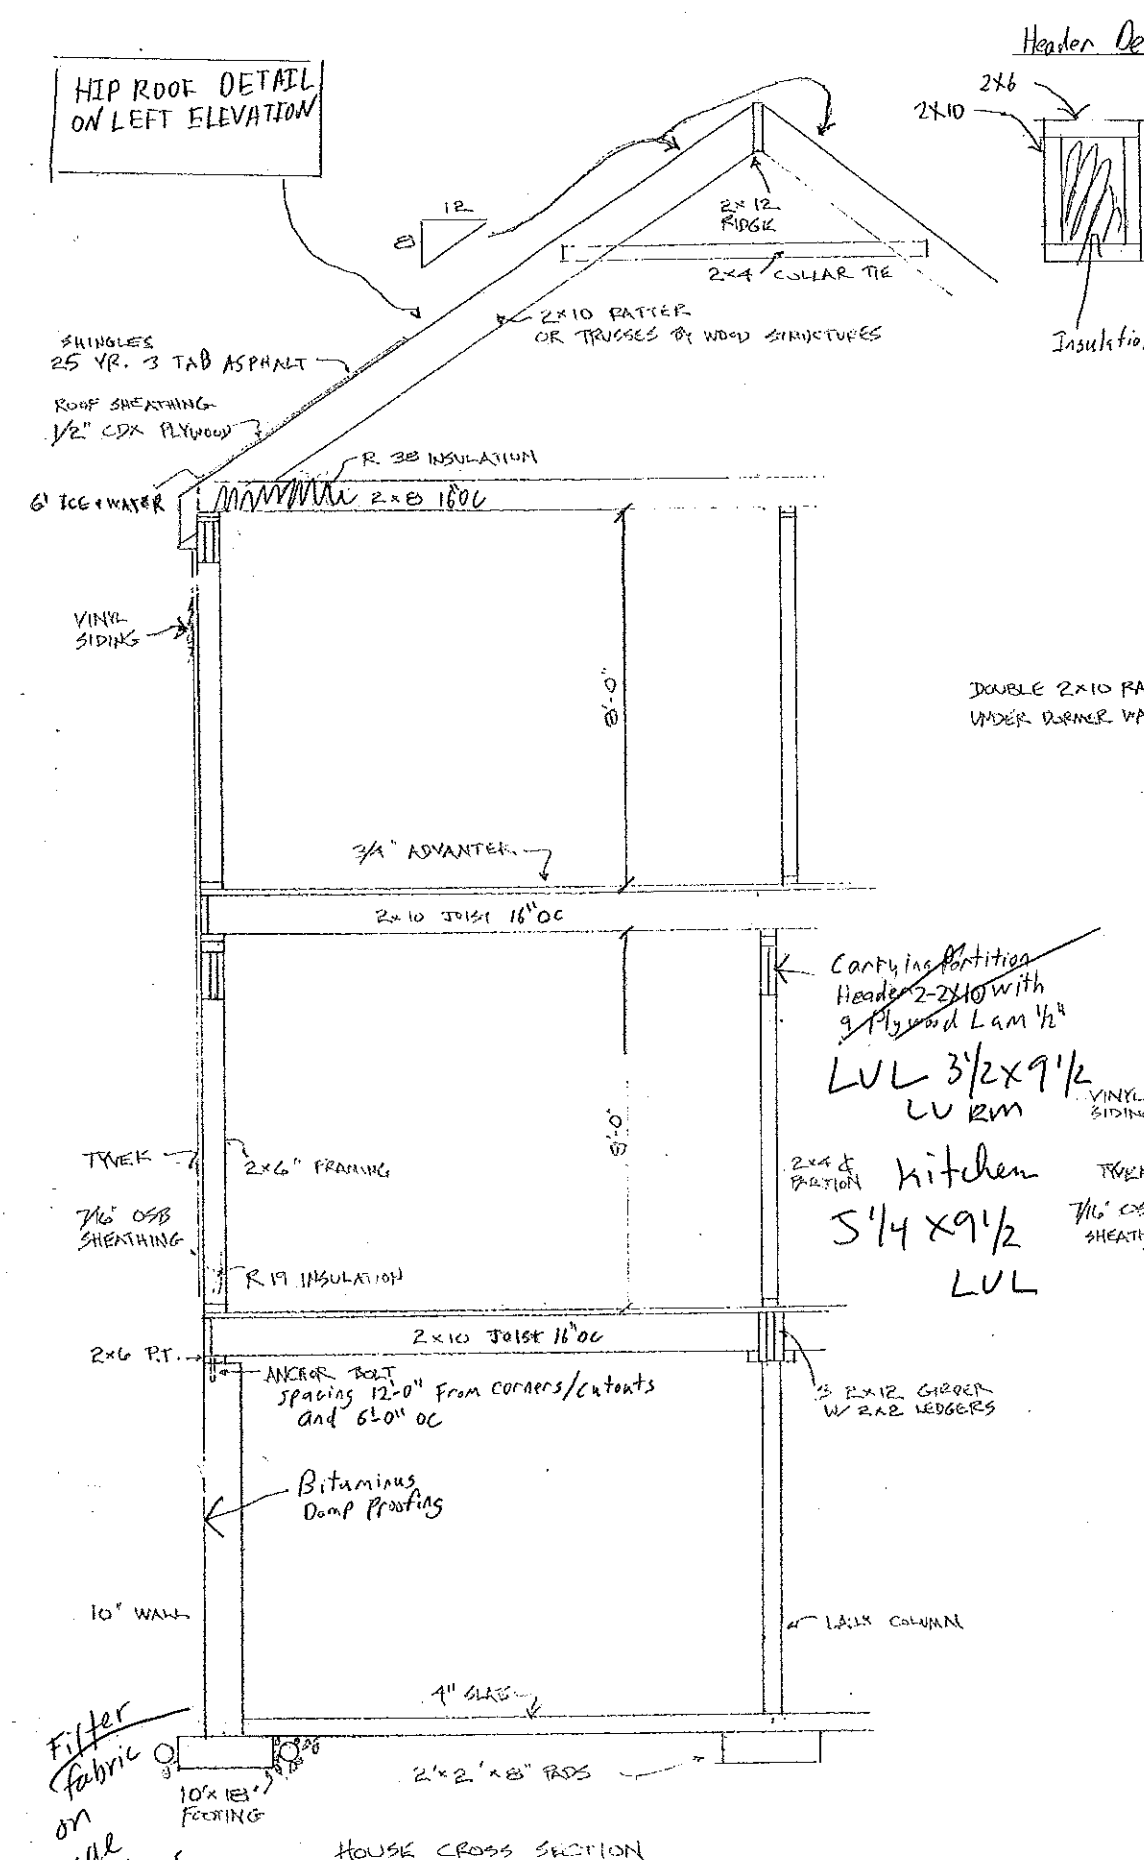 Header De
HIP ROOF DETAIL
ON LEFT ELEVATION
2X6
2X10
12
8
2x12
RIDGE
2x4 COLLAR TIE
2x10 RATTER
OR TRUSSES BY WOOD STRUCTURES
Insulation
SHINGLES
25 YR. 3 TAB ASPHALT
ROOF SHEATHING
1/2" CDX PLYWOOD
R. 38 INSULATION
6' ICE & WATER
2x8 16"OC
VINYL
SIDING
8'-0"
DOUBLE 2x10 RA
UNDER DORMER WA
3/4" ADVANTEK
2x10 JOIST 16"OC
Carrying Partition
Header 2-2X10 with
Plywood Lam 1/2"
LVL 3 1/2 X 9 1/2
LV RM
VINYL
SIDING
8'-0"
TYVEK
2x6" FRAMING
2x4
PARTION
Kitchen
TYVEK
7/16" OSB
SHEATHING
5 1/4 X 9 1/2
LVL
7/16" OS
SHEATH
R 19 INSULATION
2x10 JOIST 16"OC
2x6 P.T.
ANCHOR BOLT
spacing 12'-0" From corners/cutouts
and 6'-0" OC
3 2x12 GIRDER
W/ 2x2 LEDGERS
Bituminus
Damp Proofing
10" WALL
LALLY COLUMN
4" SLAB
Filter
fabric
on
10"x18"
FOOTING
2'x2'x8" PADS
HOUSE CROSS SECTION